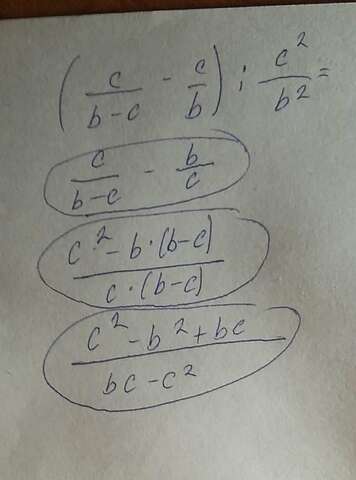 (c/(b-c) - c/b) : c²/b² =
c/(b-c) - b/c
(c² - b·(b-c))/(c·(b-c))
(c² - b² + bc)/(bc - c²)